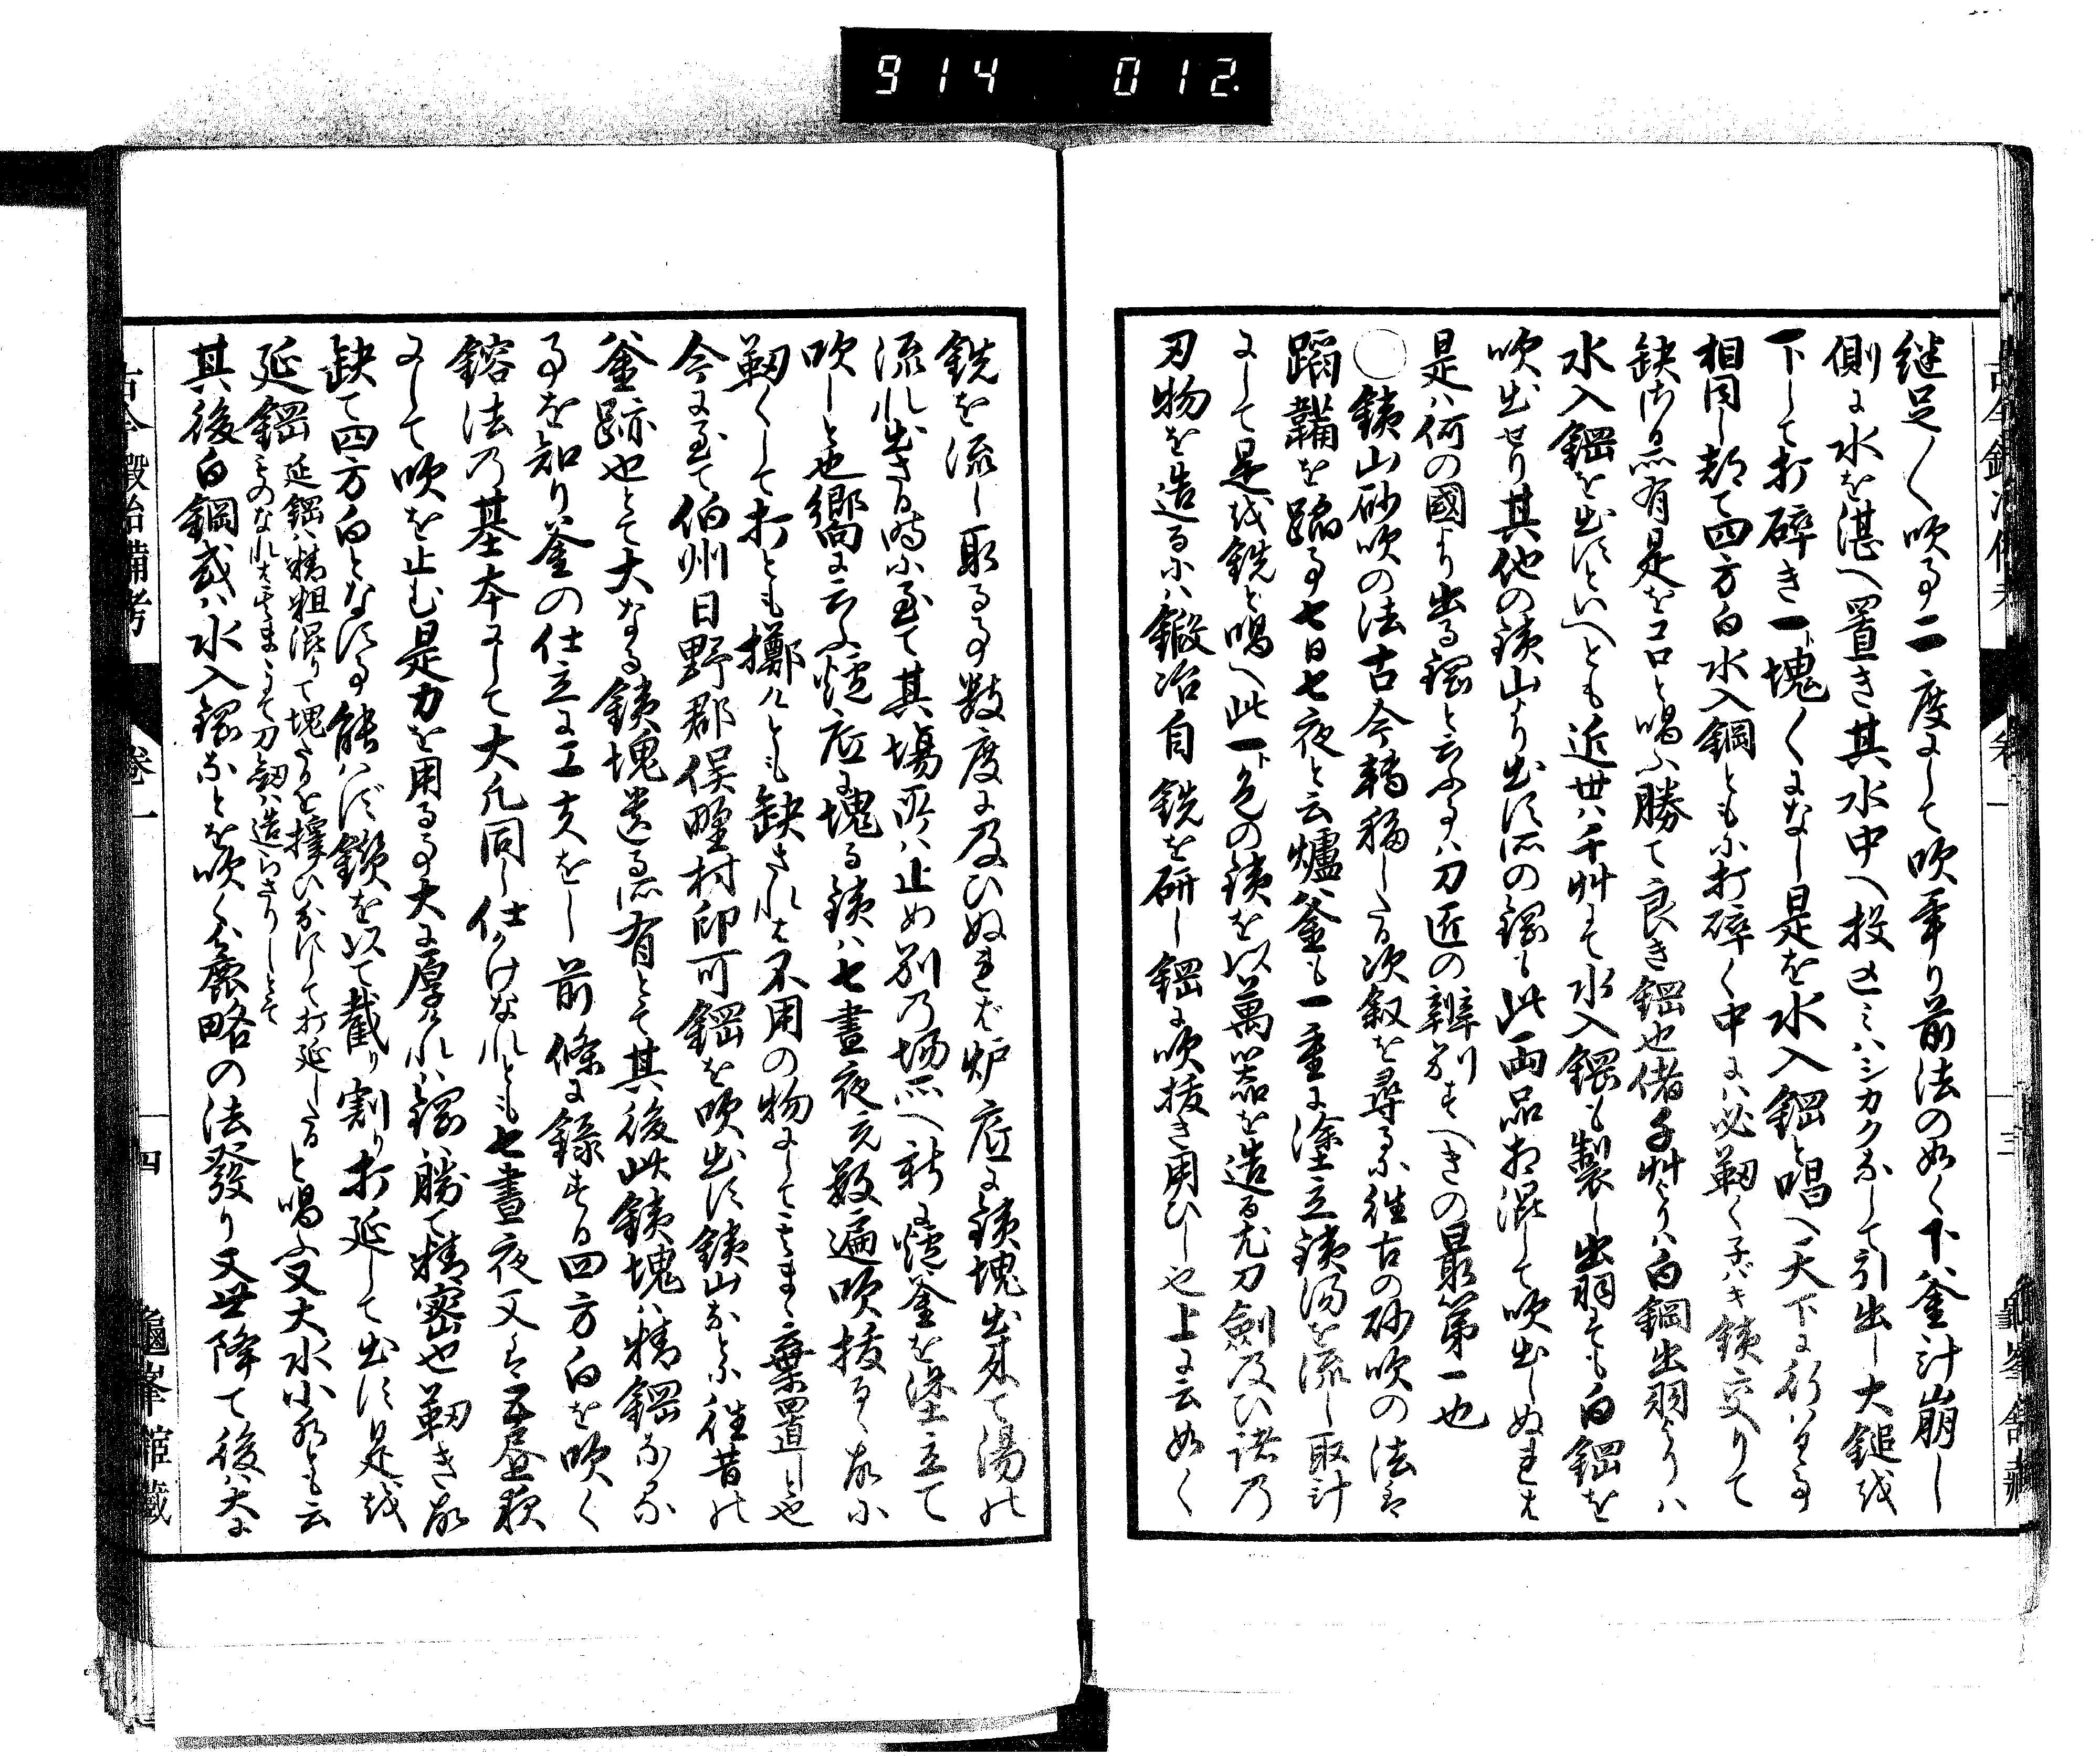 914 012.
継足〱吹事二度にして吹事り前法の如く下ハ釜計崩し
側に水を湛へ置き其水中へ投込ミハシカクなして引出し大鎚を
下して打碎き一ト塊〱になし是を水入鋼と唱へ天下に行はるゝ事
相同し都て四方白水入鋼ともに打碎く中にハ必靭く子バキ銕交りて
缺さる所有是をコロと唱ふ勝て良き鋼也偖千艸よりハ白鋼出羽よりハ
水入鋼を出すといへとも近世ハ千艸にて水入鋼も製し出羽にても白鋼を
吹出せり其他の銕山より出す所の鋼も此両品相混して吹出しぬれは
是ハ何の國より出る鋼と云ふ事ハ刀匠の辨別すへきの最第一也
○銕山砂吹の法古今轉移したる次叙を尋るに往古の砂吹の法は
蹈鞴を踏る事七日七夜と云爐釜も一重に塗立銕湯を流し取計
にして是を銑と唱へ此一ト色の銕を以萬器を造る尤刀劍及ひ諸乃
刃物を造るにハ鍛冶自銑を研し鋼に吹抜き用ひし也上に云如く
銑を流し取る事數度に及ひぬれは炉底に銕塊出来て湯の
流れ出さる時に至て其場所ハ止め別乃場所へ新に爐釜を塗立て
吹しと也郷に云ふ爐底に塊る銕ハ七晝夜充數遍吹抜る故に
靭くして打とも擲けとも缺されは不用の物にて其まゝ棄置しと也
今に至て伯州日野郡俣野村印可鋼を吹出す銕山なとに往昔の
釜跡也とて大なる銕塊遺る所有とて其後此銕塊ハ精鋼なる
事を知り釜の仕立に工夫をし前條に録する四方白を吹く
鎔法乃基本にして大凡同し仕かけなれとも七晝夜又は五昼夜
にして吹を止む是力を用る事大に厚けれハ鋼ハ勝て精密也靭き故
缺て四方白となす事能ハず鑽を以て截り割り打延して出す是を
延鋼 延鋼ハ精粗混りて塊たるを擇ひ分けて打延したる
ものなれは其まゝにて刀劍ハ造らさりしとそ と唱ふ又大水小水とも云
其後白鋼或ハ水入鋼なとを吹く麁略の法發り又世降て後ハ大に
古今鍛冶備考 卷一 四 龜峯館藏